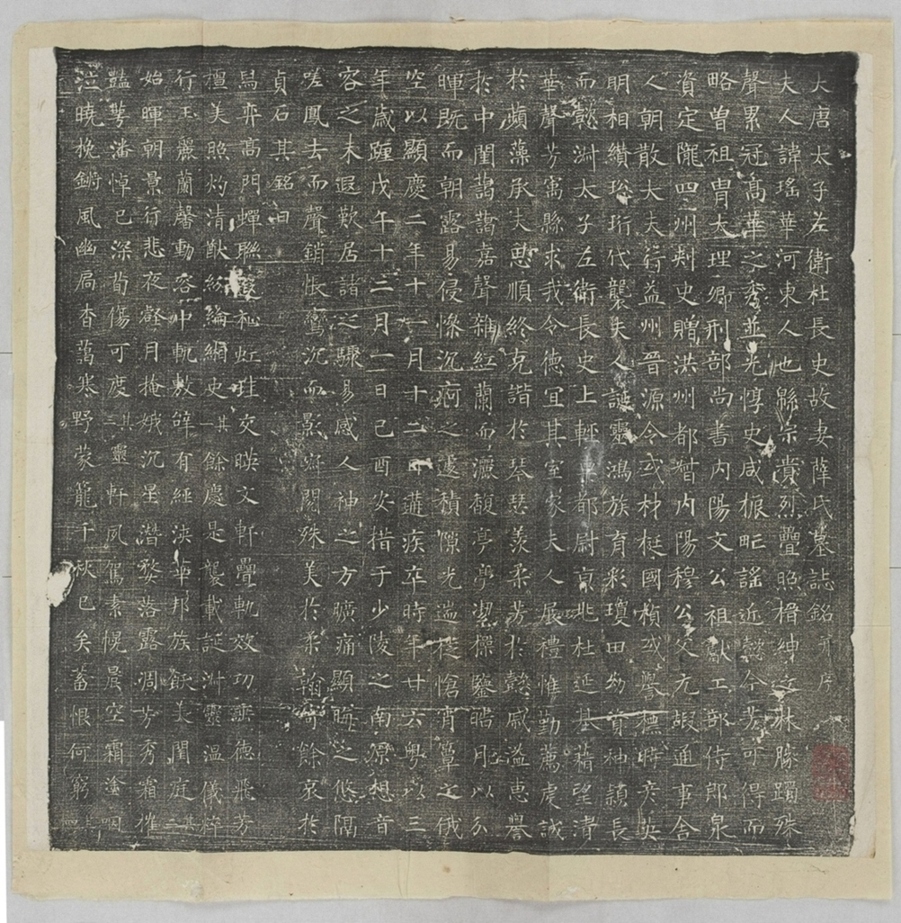 大唐太子左衛杜長史故妻薛氏墓誌銘并序
夫人諱瑤華河東人也緜宗赏烈疊照搢紳文林勝躅殊
聲累冠髙華之秀並光惇史咸振甿謠近懿今芳可得而
略曾祖胄大理卿刑部尚書内陽文公祖獻工部侍郎泉
資定隴四州刺史贈洪州都督内陽穆公父元嘏通事舍
人朝散大夫行益州晉源令或材梃國楨或譽穆時彥英
明相纘珩代襲夫人誕靈鴻族育彩瓊田幼育柚穎長
而懿淑太子左衛長史上輕車都尉京兆杜延基藉望清
華聲芳寓縣求我令德宜其室家夫人展禮惟勤薦虔誠
於蘋藻承夫思順終克諧於琴瑟羨柔芳於懿戚溢惠譽
於中閨藹藹嘉聲雜紅蘭而瀌馥亭亭潔操鑒皓月以分
暉既而朝露易侵條沉痾之遽積隙光遄徙愴宵臺之俄
空以顯慶二年十一月十二日遘疾卒時年廿六粵以三
年歲踵戊午十三月一日己酉安措于少陵之南原想音
容之未遐歎居諸之驟易感人神之方曠痛顯晦之悠隔
嗟鳳去而聲銷悵鸞沉而影寂閟殊美於柔翰寄餘哀於
貞石其銘曰
舄弈髙門蟬聯祕虹珪交映文軒疊軌效功垂德飛芳
擅美照灼清猷紛綸綱史其一餘慶是襲載誕淑靈温儀粹
行玉麗蘭馨動容中軌教肄有經浹華邦族飫美閨庭其二
始暉朝景行悲夜壑月掩娥沉星潛婺落露凋芳秀霜摧
豔萼潘悼已深荀傷可度其三靈軒夙駕素幌晨空霜塗咽
泣曉挽鏘風幽扃杳藹寒野蒙籠千秋已矣蓄恨何窮其四